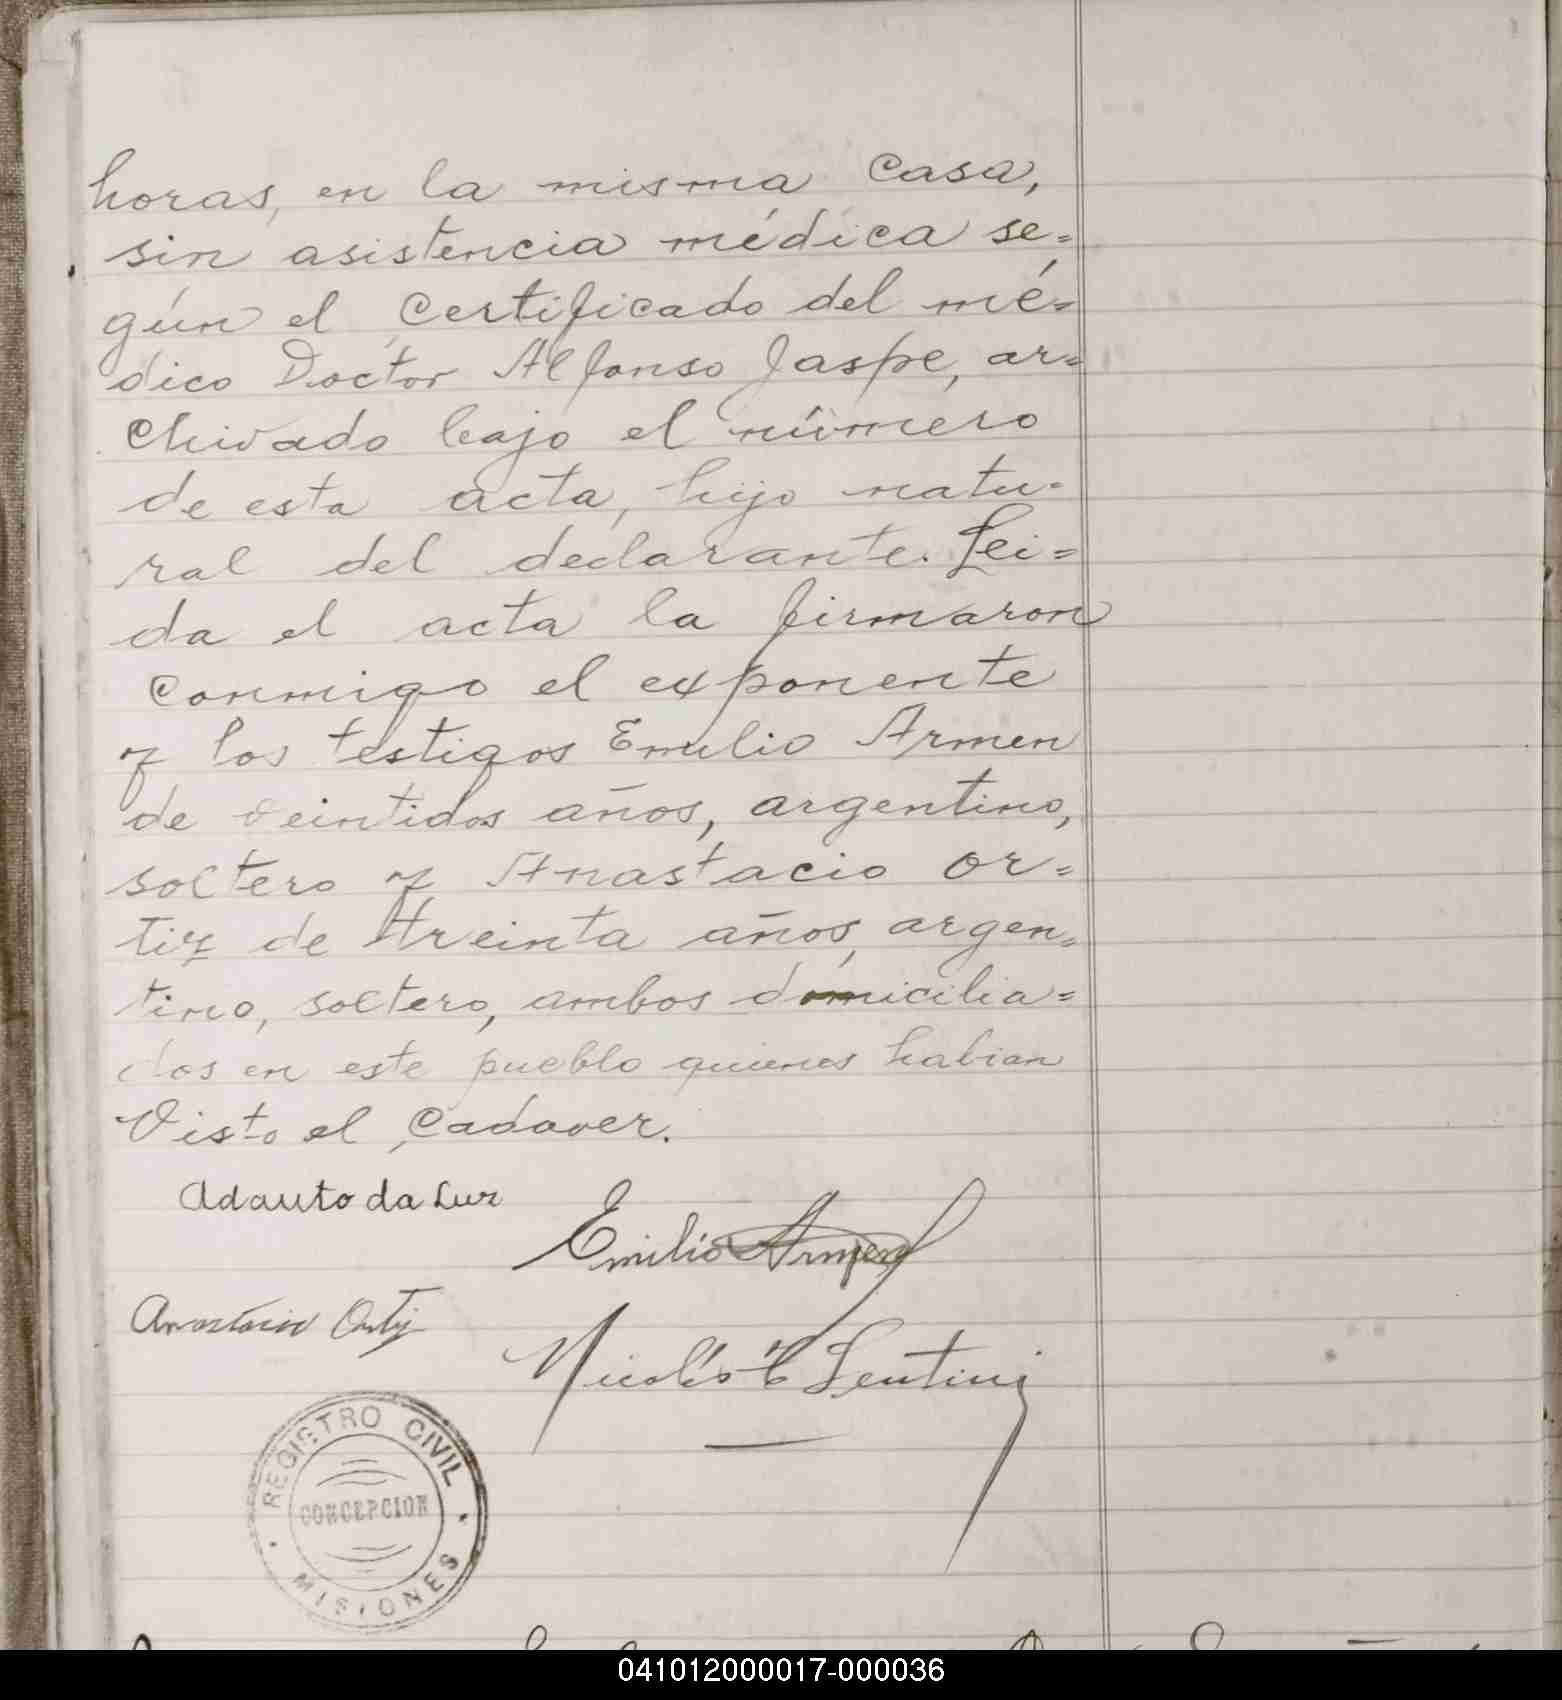 horas, en la misma casa,
sin asistencia médica se=
gún el certificado del mé=
dico Doctor Alfonso Jaspe, ar=
chivado bajo el número
de esta acta, hijo natu-
ral del declarante. Lei=
da el acta la firmaron
conmigo el exponente
y los testigos Emilio Armen
de veintidos años, argentino,
soltero y Anastacio Or=
tiz de treinta años, argen=
tino, soltero, ambos domicilia=
dos en este pueblo quienes habian
visto el cadaver.
Adauto da Luz
Emilio Armen
Anastacio Ortiz
Nicolás Lentini
REGISTRO CIVIL
CONCEPCION
MISIONES
041012000017-000036